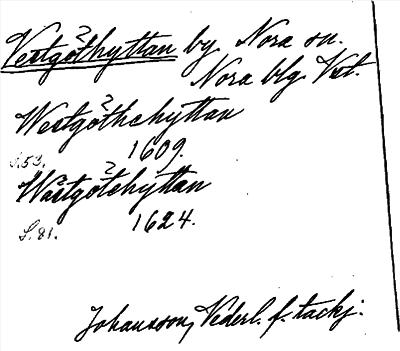 Vestgöthyttan by Nora sn.
Nora blg. Vstl.
Westgöthehyttan
1609.
S. 53.
Wästgötehyttan
1624.
S. 81.
Johansson, Vederl. f. tackj.